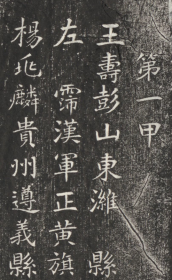 第一甲
王壽彭山東濰縣
左霈漢軍正黃旗
楊兆麟貴州遵義縣